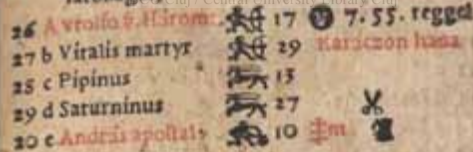 26 A vrolso 17 7. 55. regget
27 b Viralis martyr 29 Karaczon haua
25 c Pipinus 13
29 d Saturninus 27
20 e András apostal 10 m